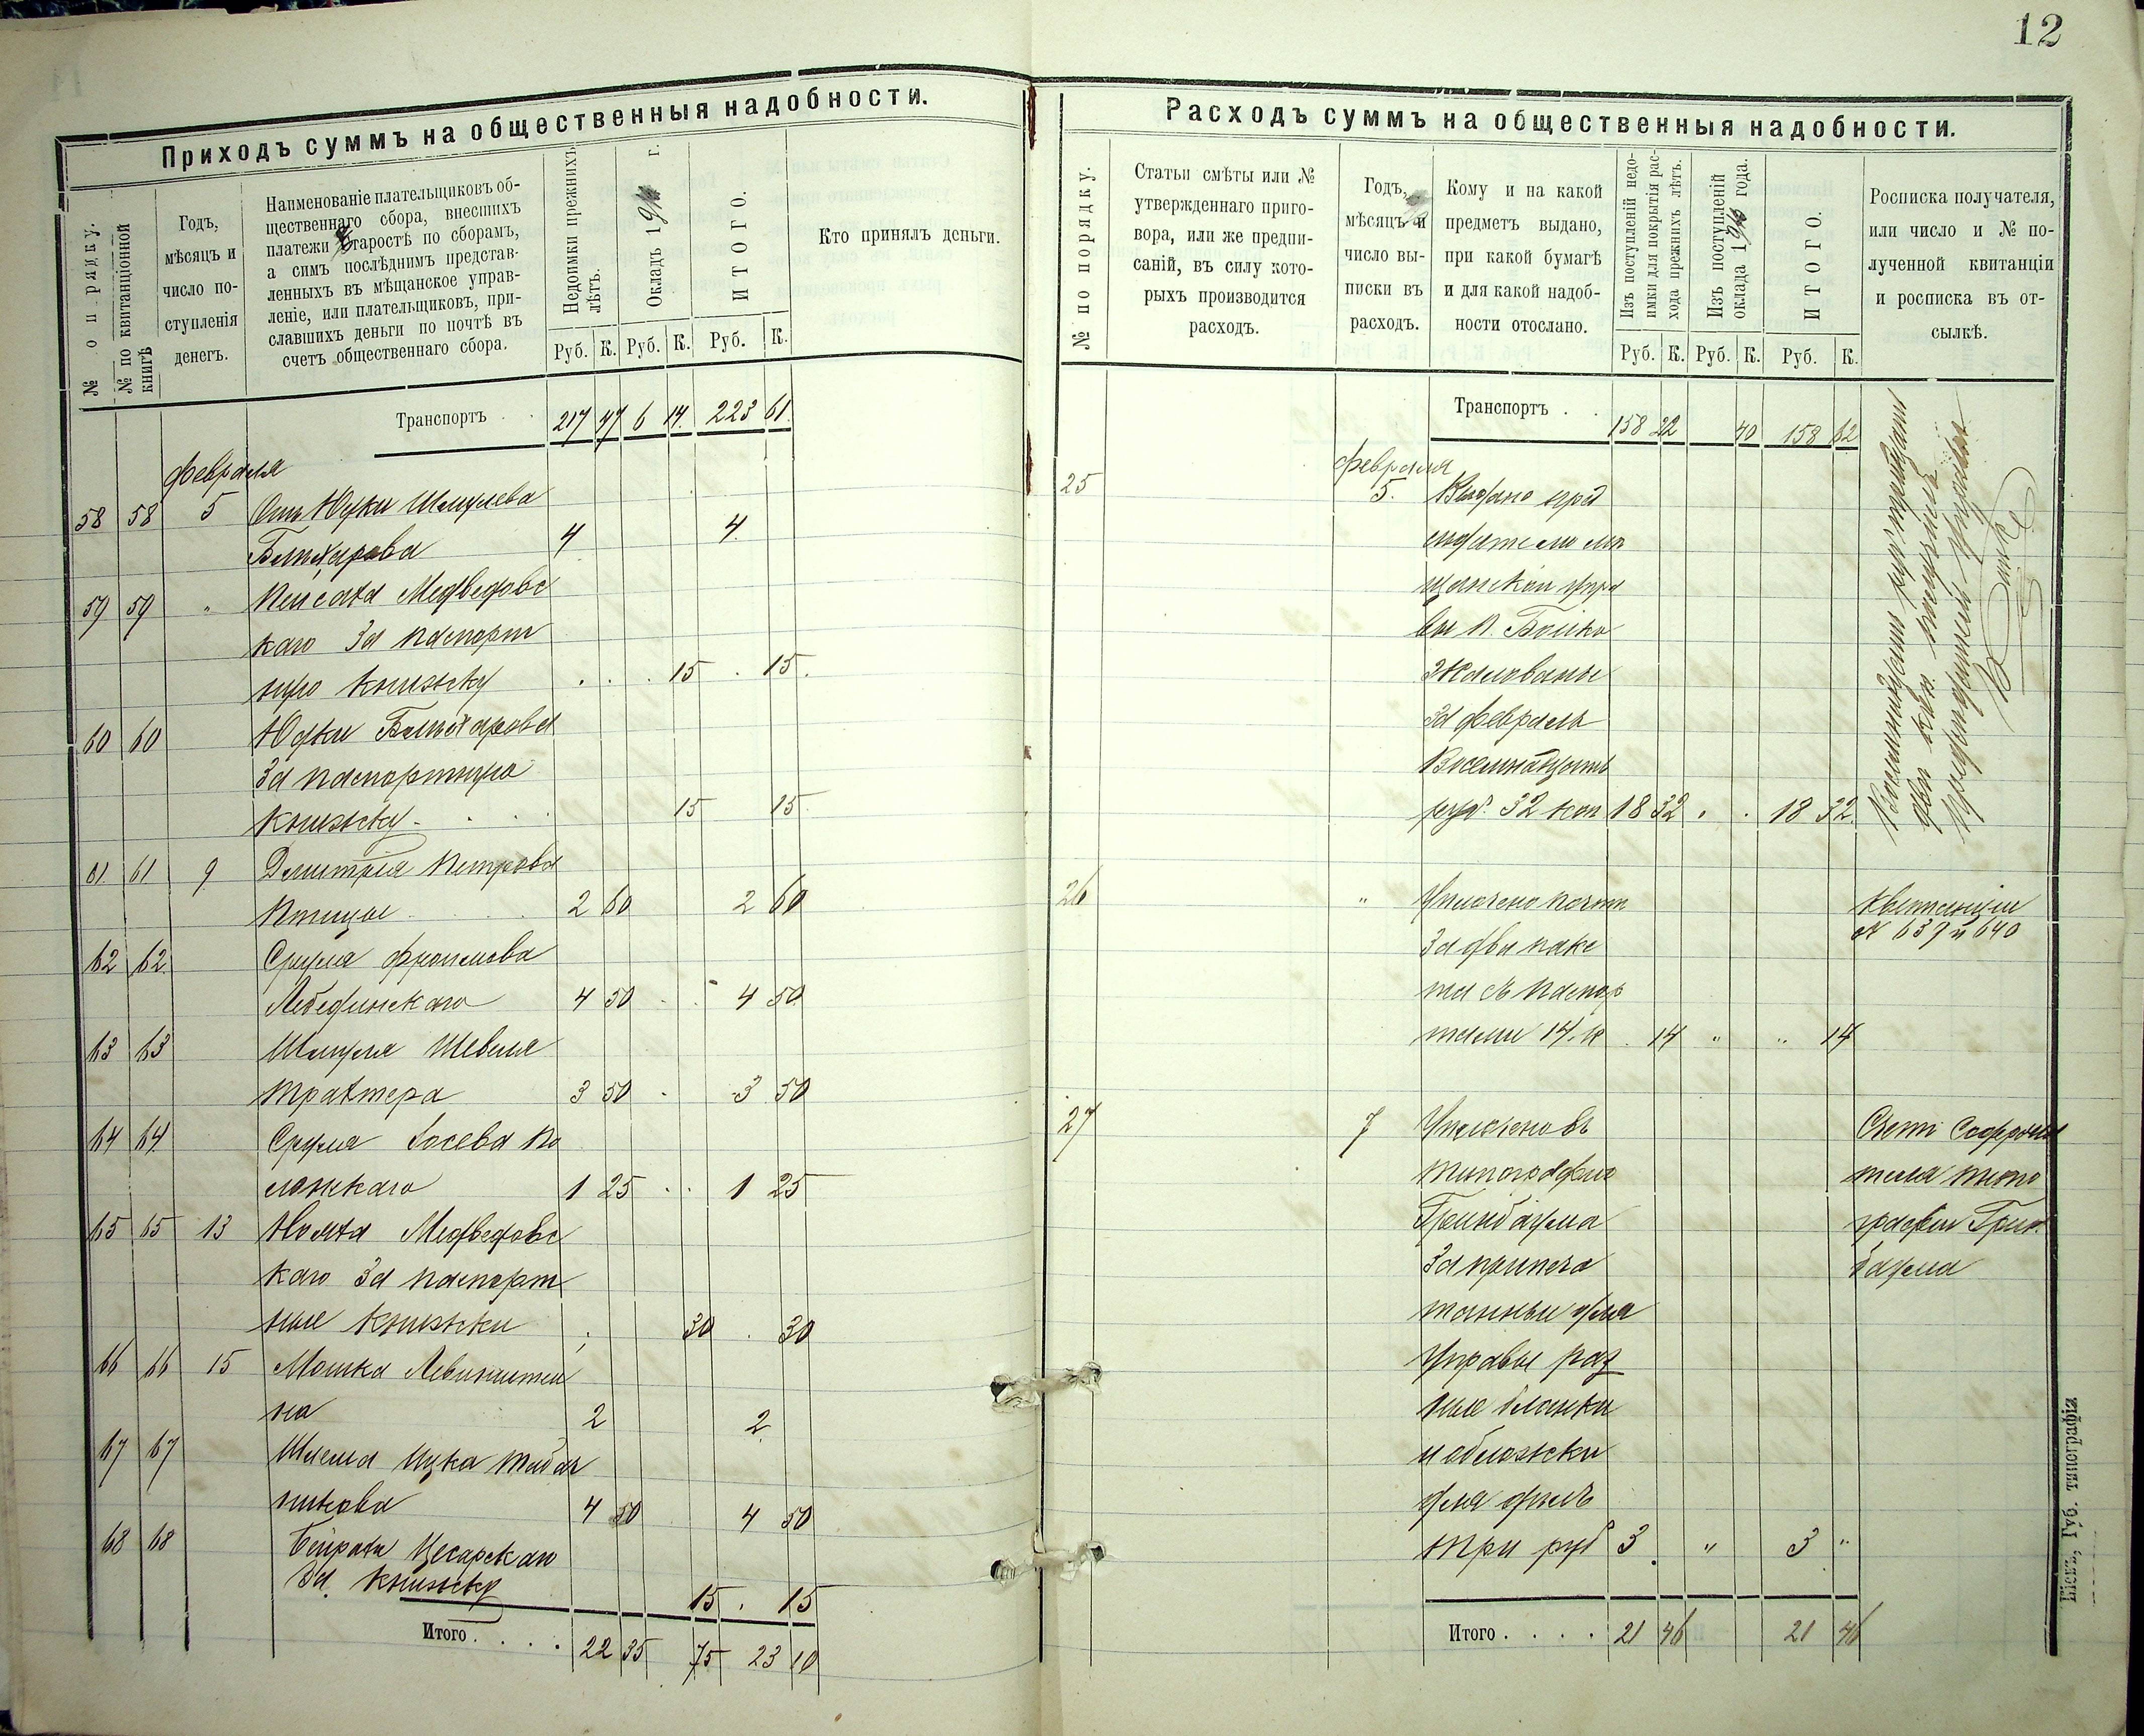 12
Приходъ суммъ на общественныя надобности.
№ по рядку.
№ по квитанціонной книгѣ
Годъ,
мѣсяцъ и
число по-
ступленія
денегъ.
Наименованіе плательщиковъ об-
щественнаго сбора, внесшихъ
платежи старостѣ по сборамъ,
а симъ послѣднимъ представ-
ленныхъ въ мѣщанское управ-
леніе, или плательщиковъ, при-
славшихъ деньги по почтѣ въ
счетъ общественнаго сбора.
Недоимки прежнихъ
лѣтъ.
Окладъ 1910 г.
ИТОГО.
Кто принялъ деньги.
Руб. К. Руб. К. Руб. К.
Транспортъ . . 217 47 6 14. 223 61.
февраля
58 58 5 Отъ Юдки Шмулева
4 4.
59 59 „ Медведовс
каго за паспорт
ную книжку . . . 15 . 15.
60 60 Юдки
за паспортную
книжку . . . 15 15.
61. 61 9 Дмитрія Петрова
Птицы . . . 2 60 2 60
62 62. Сруля Фроимова
Лебединскаго 4 50 . . 4 50
63 63 Шмуля Шевеля
Трахтера 3 50 . 3 50
64 64. Сруля Іосева По
лонскаго 1 25 . . 1 25
65 65 13 Медведовс
каго за паспорт
ные книжки . 30 . 30
66 66 15 Мошка Левинштей
на 2 2.
67 67 Шлема Ицка
4 50 4 50
68 68 Цесарскаго
за книжку 15 . 15
Итого . . . . 22 35 75 23 10
Расходъ суммъ на общественныя надобности.
№ по порядку.
Статьи смѣты или №
утвержденнаго приго-
вора, или же предпи-
саній, въ силу кото-
рыхъ производится
расходъ.
Годъ,
мѣсяцъ и
число вы-
писки въ
расходъ.
Кому и на какой
предметъ выдано,
при какой бумагѣ
и для какой надоб-
ности отослано.
Изъ поступленій недо-
имки для покрытія рас-
хода прежнихъ лѣтъ.
Изъ поступленій
оклада 1910 года.
ИТОГО.
Росписка получателя,
или число и № по-
лученной квитанціи
и росписка въ от-
сылкѣ.
Руб. К. Руб. К. Руб. К.
Транспортъ . . 158 22 40 158 62
февраля
25 5. Выдано пред
сидателю мѣ
щанской упра
вы П. Бойко
жалованье
за февраль
Восемнадцать
руб. 32 коп 18 32 . . 18 32.
Восемнадцать руб тридцать
две коп. получилъ
Предсидатель Управы
26 „ Уплочено почт
за два паке
та съ паспор
тами 14. к . 14 „ „ 14
Квитанціи
№ 637 и 640
27 7 Уплочено въ
типографію
Гринбаума
за припеча
танные для
Управы раз
ные бланки
и обложски
для дѣлъ
Три руб 3. „ 3 „
Счетъ
типо
графіи Грин.
баума
Итого . . . . 21 46 21 46
Кіевъ, Губ. типографія